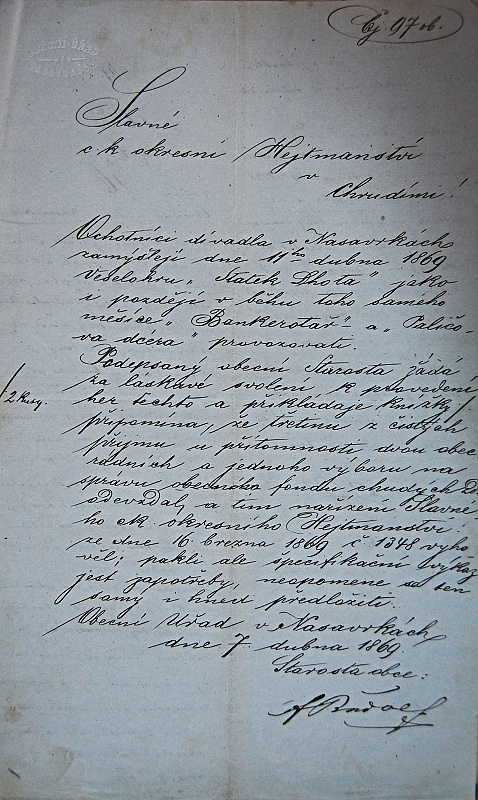 Čj 97 ob.
Slavné
c k okresní Hejtmanství
v
Chrudimi!
Ochotníci divadla v Nasavrkách
zamýšlejí dne 11ho dubna 1869
veselohru „Statek Lhota" jako
i později v běhu toho samého
měsíce „Bankerotář" a „Paličo-
va dcera" provozovati.
Podepsaný obecní Starosta žádá
za láskavé svolení k provedení
her těchto a přikládaje knížky
2 kusy.
připomíná, že třetinu z čistých
příjmu u přítomnosti dvou obec.
rádních a jednoho výboru na
spravu obecního fondu chudých
odevzdal, a tím nařízení Slavné-
ho ck. okresního Hejtmanství
ze dne 16. března 1869 č. 1348 vyho
věl; pakli ale špecifikační výkaz
jest zapotřeby, neopomene se ten
samý i hned předložiti.
Obecní Úrad v Nasavrkách
dne 7. dubna 1869.
Starosta obce: